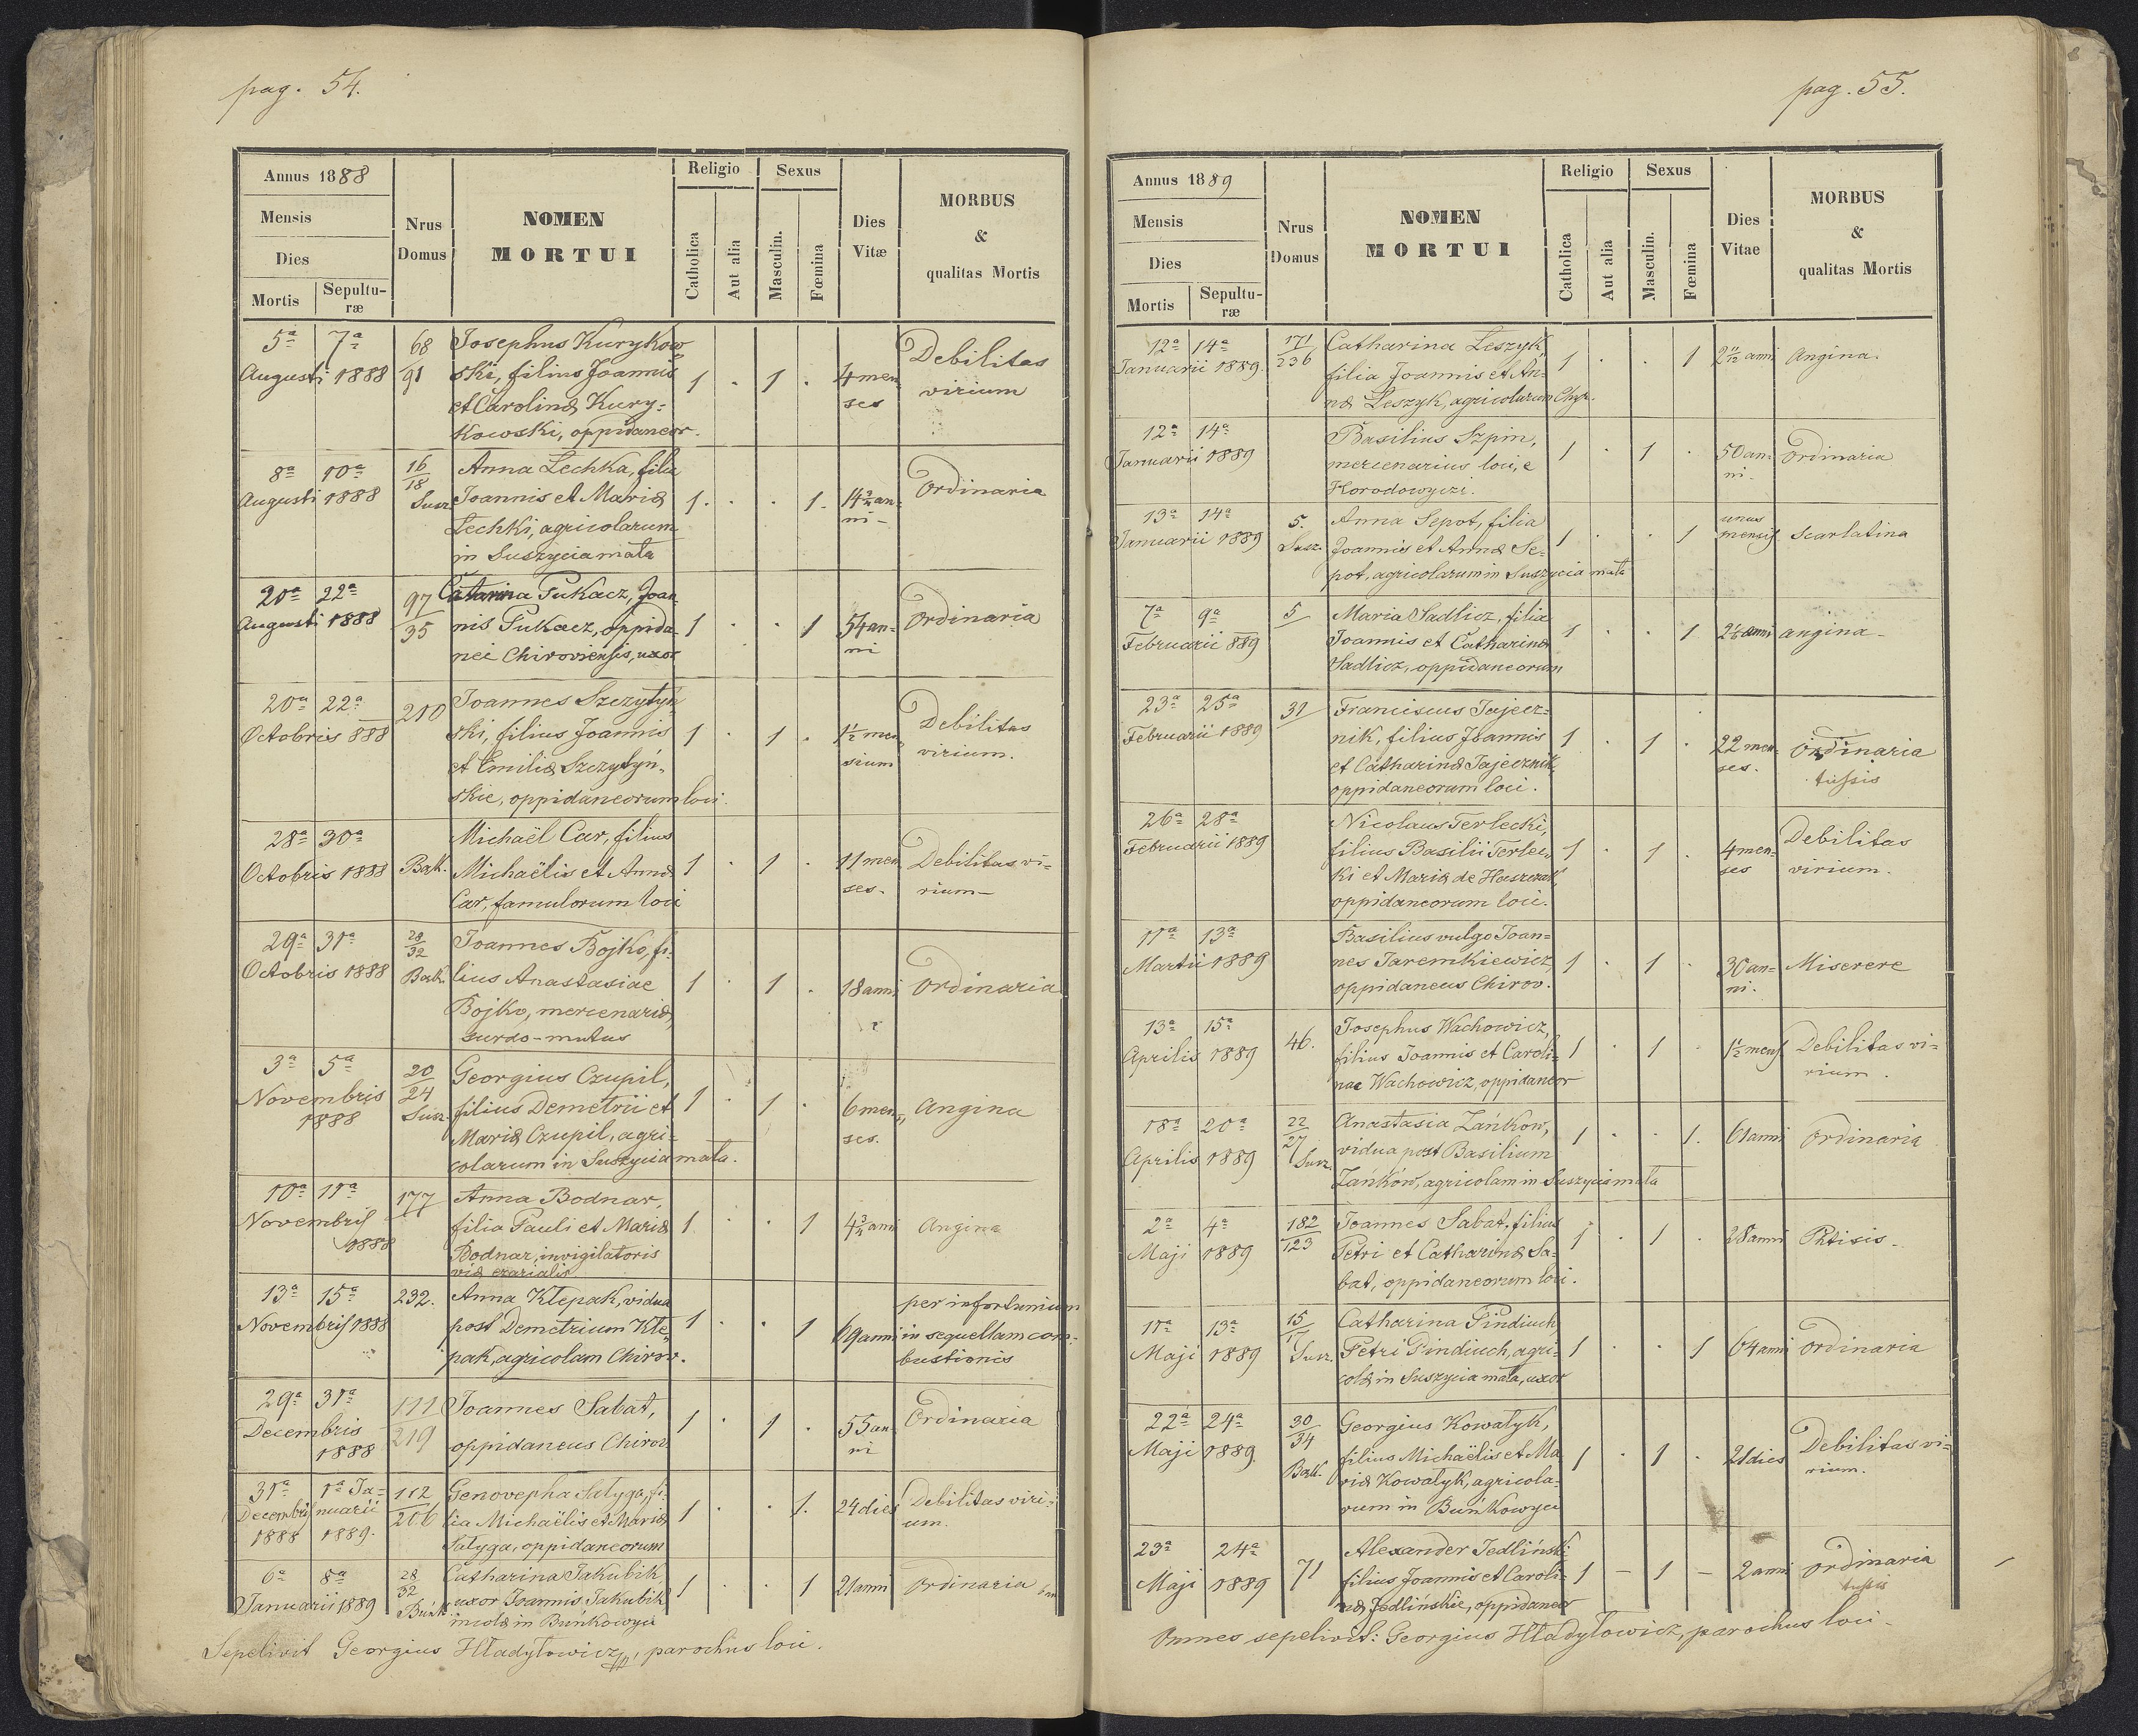 pag. 54.
Annus 1888
Mensis
Dies
Mortis
Sepultu-
ræ
Nrus
Domus
NOMEN
MORTUI
Religio
Catholica
Aut alia
Sexus
Masculin.
Fœmina
Dies
Vitæ
MORBUS
&
qualitas Mortis
5ª 7ª 68 Josephus Kurykow
Augusti 1888 91 ski, filius Joannis 1 . 1 . 4 men Debilitas
et Carolinæ Kury= ses virium
kowski, oppidaneor.
8ª 10ª 16 Anna Lechka, filia
Augusti 1888 18 Susz. Joannis et Mariæ 1. . . 1. 14 an= Ordinaria
Lechki, agricolarum ni -
in Suszycia mała
20ª 22ª 97 Catarina Pukacz, Joan
Augusti 1888 35 nis Pukacz, oppida- 1 . . 1 54 an- Ordinaria
nei Chiroviensis, uxor ni
20ª 22ª 210 Joannes Szczytyń
Octobris 888 ski, filius Joannis 1 . 1 . 1½ men Debilitas
et Emiliæ Szczytyń- sium virium.
skie, oppidaneorum loci.
28ª 30ª Michaël Car, filius
Octobris 1888 Bąk. Michaëlis et Annæ 1 . 1 . 11 men Debilitas vi-
Car, famulorum loci ses. rium -
29ª 31ª 28 32 Joannes Bojko, fi-
Octobris 1888 lius Anastasiae 1 . 1 . 18 anni Ordinaria
Bojko, mercenariæ,
surdo-mutus
3ª 5ª 20 Georgius Czupil,
Novembris 24 Susz. filius Demetrii et 1 . 1 . 6 men, Angina
1888 Mariæ Czupil, agri= ses.
colarum in Suszycia mała.
10ª 11ª 177 Anna Bodnar,
Novembris filia Pauli et Mariæ 1 . . 1 4¾ anni Angina
1888 Bodnar, invigilatoris
viæ erarialis
13ª 15ª 232. Anna Klepak, vidua per infortunium
Novembris 1888 post Demetrium Kle- 1 . . 1 69 anni in sequellam com-
pak, agricolam Chirov. bustionis
29ª 31ª 111 Joannes Sabat, Ordinaria
Decembris 219 1 . 1 . 55 an
1888 oppidaneus Chirov. ni
31ª 1ª Ja= 112 Genovepha Sałyga, fi-
Decembris nuarii 206 lia Michaëlis et Mariæ 1 . . 1. 24 dies Debilitas viri-
1888 1889. Sałyga, oppidaneorum um.
6ª 8ª 28 Catharina Jakubik
Januarii 1889 32 Buńk. uxor Joannis Jakubik 1 . . 1 21 anni Ordinaria
incolæ in Buńkowyci
Sepelivit Georgius Hładyłowicz, parochus loci.
pag. 55.
Annus 1889
Mensis
Dies
Mortis
Sepultu-
ræ
Nrus
Domus
NOMEN
MORTUI
Religio
Catholica
Aut alia
Sexus
Masculin.
Fœmina
Dies
Vitae
MORBUS
&
qualitas Mortis
12ª 14ª 171 Catharina Leszyk,
Januarii 1889. 236 filia Joannis et An= 1 . . 1 2 11/12 anni Angina.
næ Leszyk, agricolarum Chyr.
12ª 14ª Basilius Szpin,
Januarii 1889 mercenarius loci, e 1 . 1 . 50 an= Ordinaria
Horodowyczi. ni.
13ª 14ª 5. Anna Sepot, filia unus
Januarii 1889 Susz. Joannis et Annæ Se= 1 . . 1 mensis Scarlatina
pot, agricolarum in Suszycia mała
7ª 9ª 5 Maria Sadlicz, filia
Februarii 889 Joannis et Catharinæ 1 . . 1 anni angina -
Sadlicz, oppidaneorum
23ª 25ª 31 Franciscus Jajecz=
Februarii 1889 nik, filius Joannis 1 . 1 . 22 men- Ordinaria
et Catharinæ Jajecznik, ses. tussis
oppidaneorum loci.
26ª 28ª Nicolaus Terlecki,
Februarii 1889 filius Basilii Terlec 1 . 1 . 4 men- Debilitas
ki et Mariæ de ses virium.
oppidaneorum loci.
11ª 13ª Basilius vulgo Joan=
Martii 1889 nes Jaremkiewicz, 1 . 1 . 30 an= Miserere
oppidaneus Chirov. ni.
13ª 15ª 46. Josephus Wachowicz,
Aprilis 1889 filius Joannis et Caroli= 1 . 1 . 1½ mens Debilitas vi=
nae Wachowicz, oppidaneor rium.
18ª 20ª 22 Anastasia Łańków,
Aprilis 1889 27 Susz. vidua post Basilium 1 . . 1. 61 anni Ordinaria
Łańków, agricolam in Suszycia mała
2ª 4ª 182 Joannes Sabat, filius
Maji 1889 123 Petri et Catharinæ Sa- 1 . 1 . 28 anni Phtisis -
bat, oppidaneorum loci.
11ª 13ª 15 Catharina Pindiuch,
Maji 1889 17 Susz. Petri Pindiuch, agri- 1 . . 1 64 anni Ordinaria
colæ in Suszycia mała, uxor
22ª 24ª 30 Georgius Kowalyk,
Maji 1889. 34 filius Michaëlis et Ma 1 . 1 . 21 dies Debilitas vi=
Bąk. riæ Kowalyk, agricola- rium.
rum in Buńkowyci
23ª 24ª Alexander Jedliński
Maji 1889 71 filius Joannis et Caroli= 1 - 1 - 2 anni Ordinaria
næ Jedlińskie, oppidaneor tussis
Omnes sepelivit: Georgius Hładyłowicz, parochus loci -